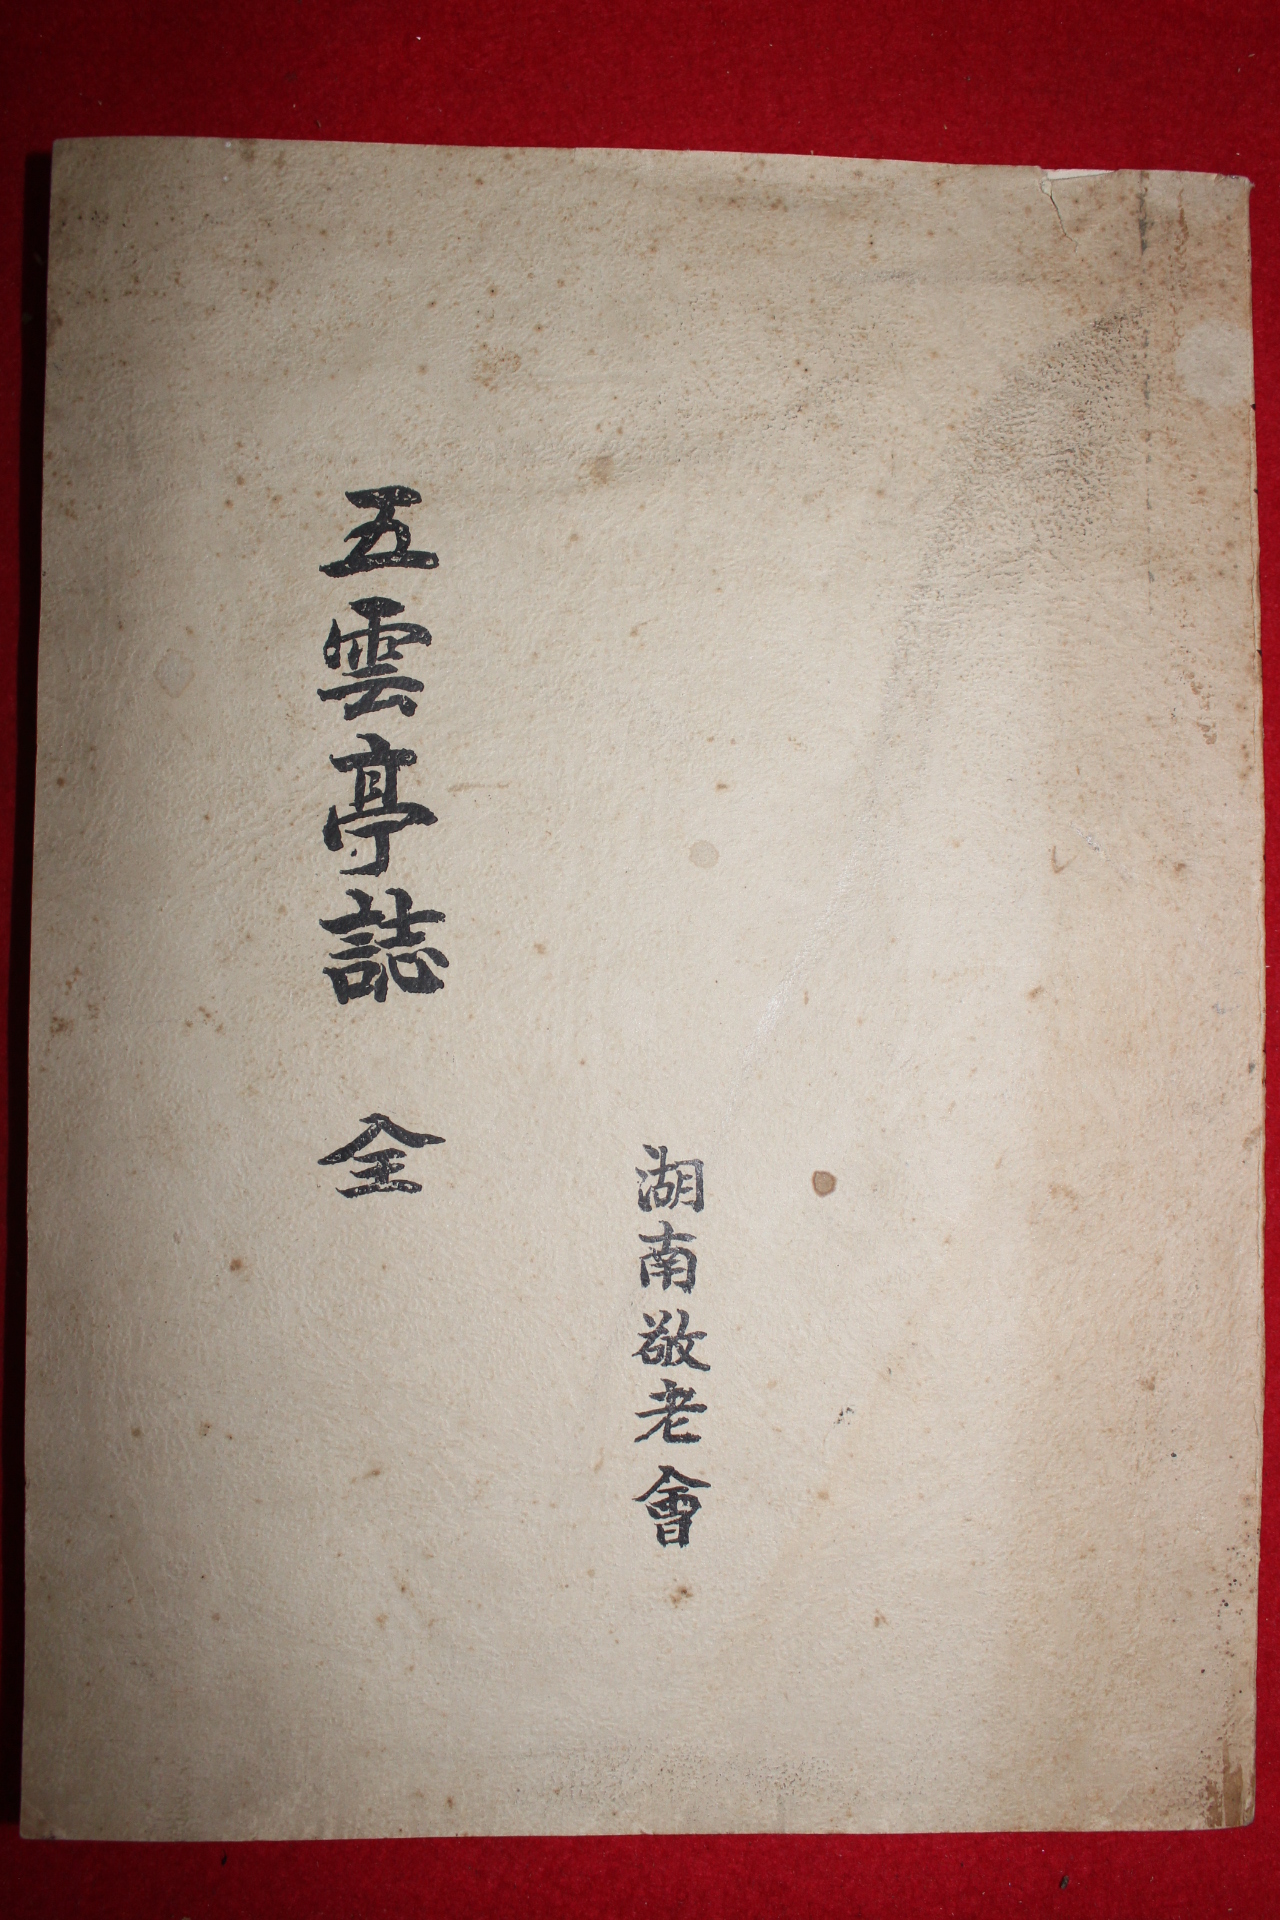 湖南敬老會
五雲亭誌 全